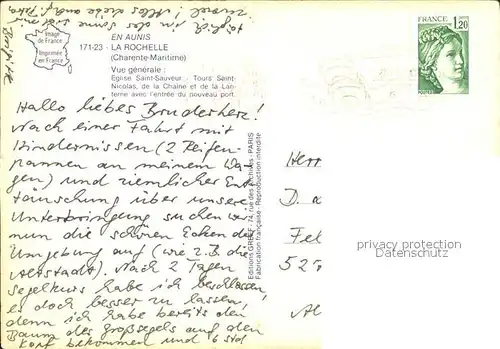 Image
de France
Imprimée
en France
EN AUNIS
171-23 - LA ROCHELLE
(Charente-Maritime)
Vue générale :
Eglise Saint-Sauveur - Tours Saint-
Nicolas, de la Chaine et de la Lan-
terne avec l'entrée du nouveau port.
FRANCE
1,20
Hallo liebes Bruderherz!
Nach einer Fahrt mit
Hindernissen (2 Reifen-
pannen an meinem Wa-
gen) und ziemlicher Ent
täuschung über unsere
Unterbringung suchen wir
nun die schönen Ecken der
Umgebung auf (wie z.B. die
Altstadt). Nach 2 Tagen
Segelkurs habe ich beschlossen,
es doch besser zu lassen,
denn ich habe bereits den
Baum des Großsegels auf den
Kopf bekommen und 6 Std
täglich in der Sonne sind mir
zuviel! Alles Liebe
Editions GREFF - 74, rue des Archives - PARIS
Fabrication française - Reproduction interdite
Herr
D. a
Fel
52
privacy protection
Datenschutz